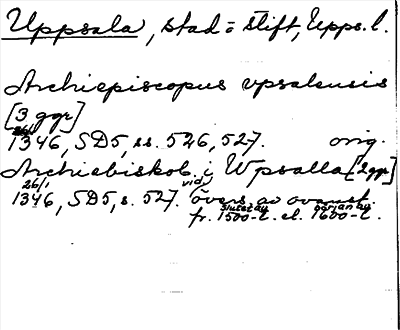 Uppsala, stad o. stift, Upps. l.
Archiepiscopus vpsalensis
[3 ggr]
26/1
1346, SD5, ss. 526, 527. orig.
Archiebiskob i Wpsalla [2 ggr]
26/1 vid
1346, SD5, s. 527. övers. av avskr.
slutet av början av
fr. 1500-t. el. 1600-t.